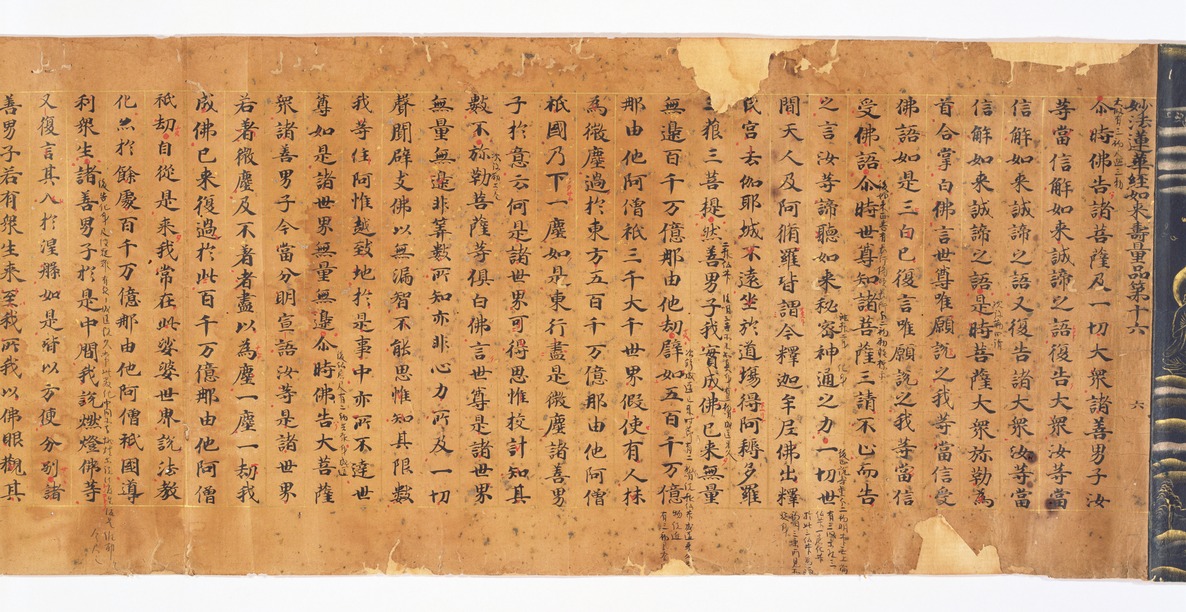 妙法蓮華經如来壽量品第十六 六
尒時佛告諸菩薩及一切大衆諸善男子汝
等當信解如来誠諦之語復告大衆汝等當
信解如来誠諦之語又復告諸大衆汝等當
信解如来誠諦之語是時菩薩大衆弥勒為
首合掌白佛言世尊唯願說之我等當信受
佛語如是三白已復言唯願說之我等當信
受佛語尒時世尊知諸菩薩三請不止而告
之言汝等諦聽如来秘密神通之力一切世
間天人及阿脩羅皆謂今釋迦牟尼佛出釋
氏宮去伽耶城不遠坐於道場得阿耨多羅
三藐三菩提然善男子我實成佛已来無量
無邊百千万億那由他劫譬如五百千万億
那由他阿僧祇三千大千世界假使有人抹
為微塵過於東方五百千万億那由他阿僧
祇國乃下一塵如是東行盡是微塵諸善男
子於意云何是諸世界可得思惟校計知其
數不弥勒菩薩等俱白佛言世尊是諸世界
無量無邊非筭數所知亦非心力所及一切
聲聞辟支佛以無漏智不能思惟知其限數
我等住阿惟越致地於是事中亦所不達世
尊如是諸世界無量無邊尒時佛告大菩薩
衆諸善男子今當分明宣語汝等是諸世界
若著微塵及不著者盡以為塵一塵一劫我
成佛已来復過於此百千万億那由他阿僧
祇劫自從是来我常在此娑婆世界說法教
化亦於餘處百千万億那由他阿僧祇國導
利衆生諸善男子於是中間我說燃燈佛等
又復言其入於涅槃如是皆以方便分別諸
善男子若有衆生来至我所我以佛眼觀其